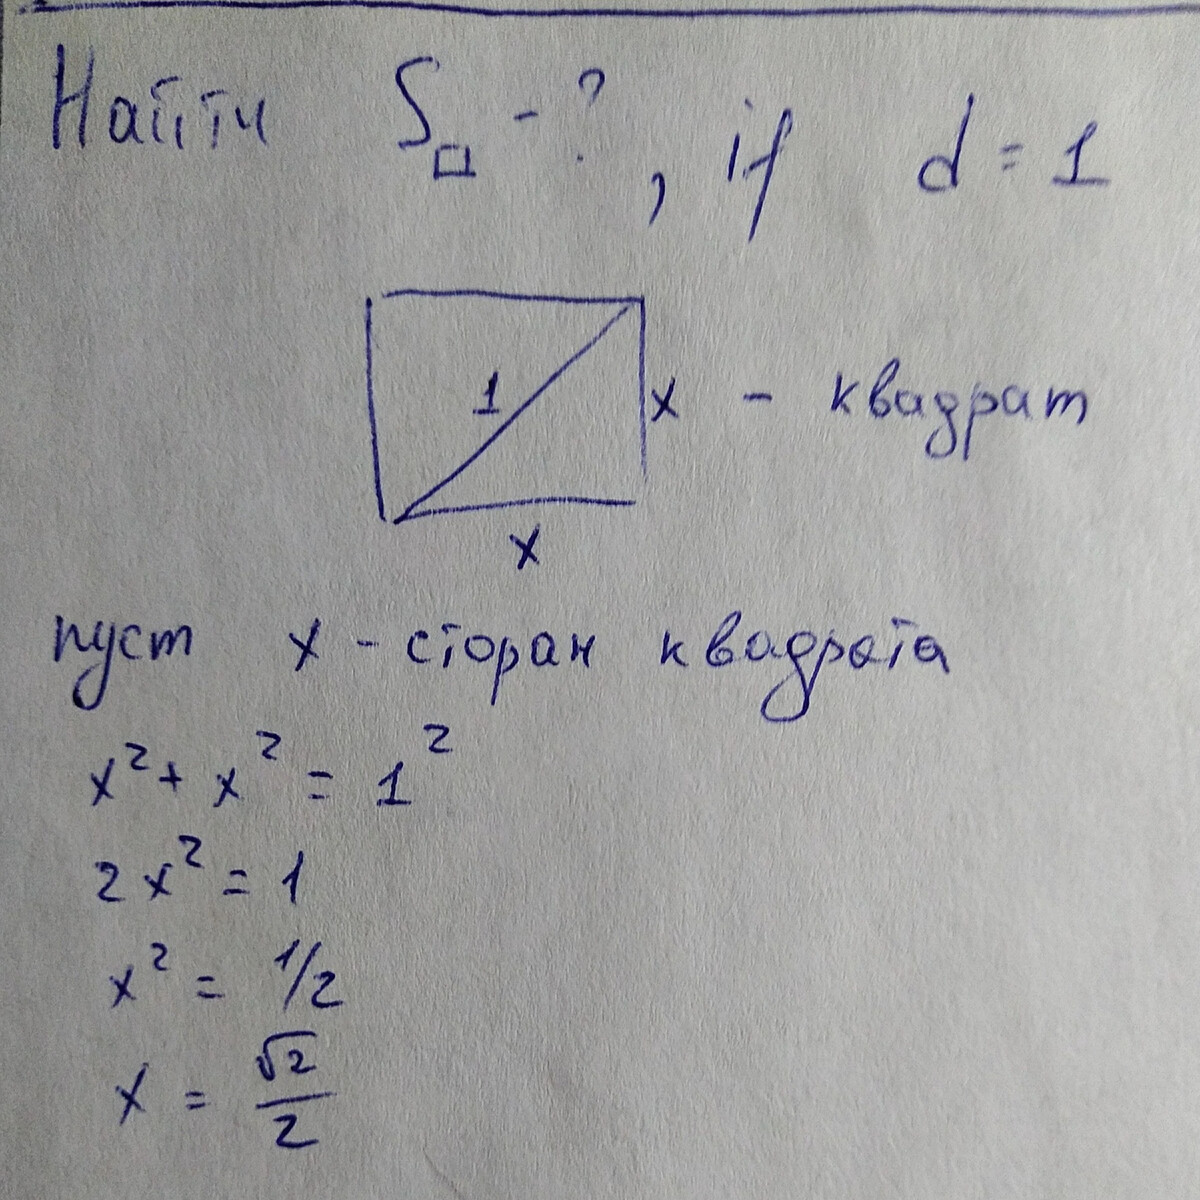 Найти S□ - ?, if d = 1
1
x - квадрат
x
пуст x - сторан квадрата
x² + x² = 1²
2x² = 1
x² = 1/2
x = √2/2